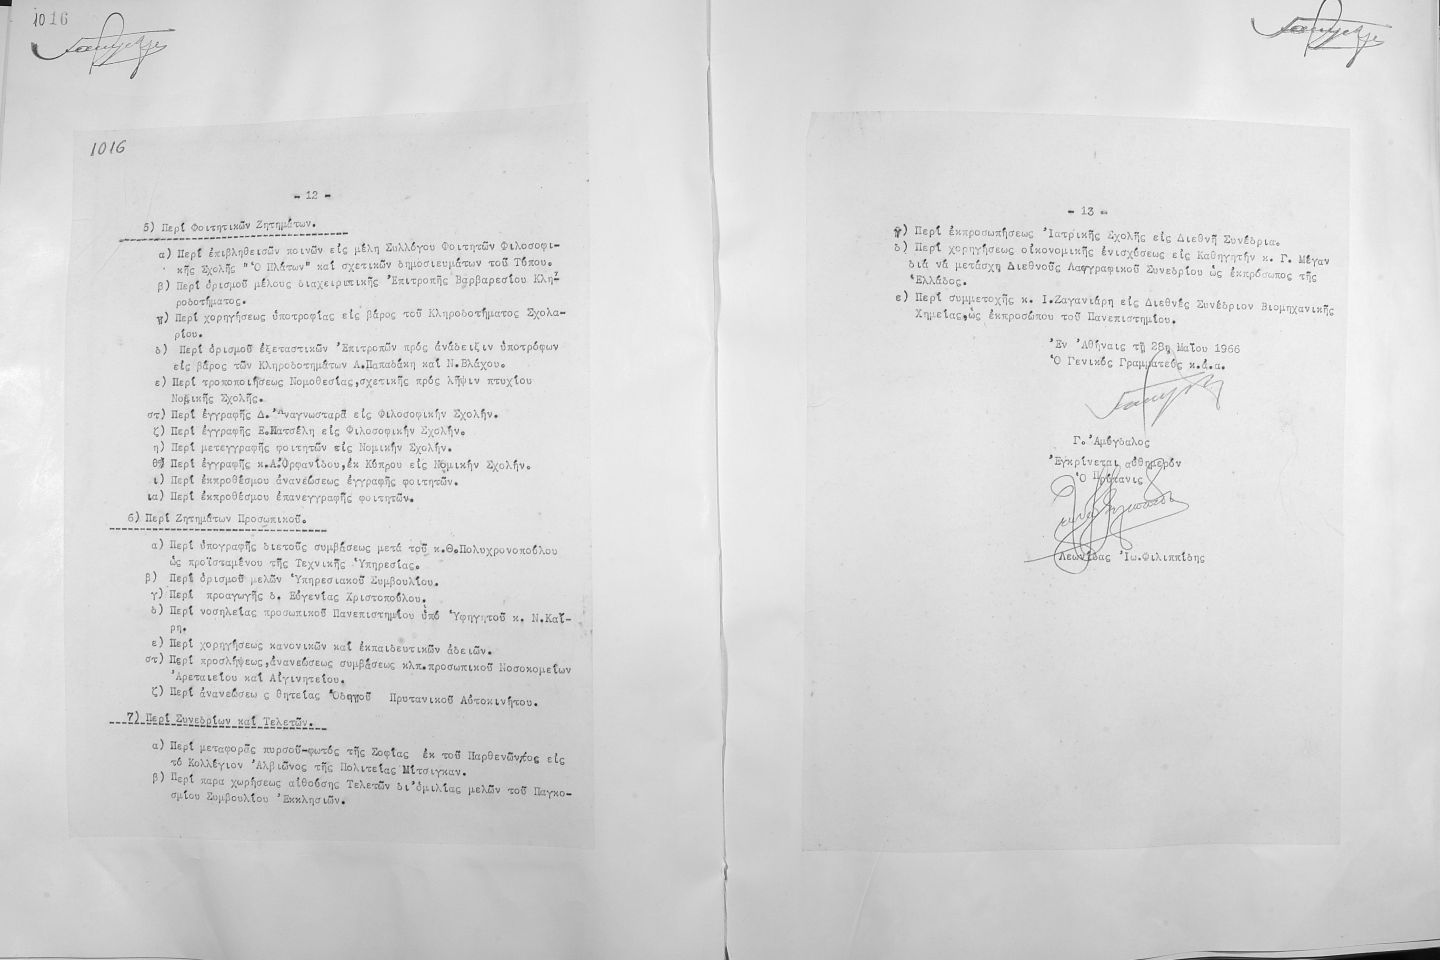 1016
1016
- 12 -
5) Περί Φοιτητικῶν Ζητημάτων.
α) Περί ἐπιβληθεισῶν ποινῶν εἰς μέλη Συλλόγου Φοιτητῶν Φιλοσοφι-
κῆς Σχολῆς "Ὁ Πλάτων" καί σχετικῶν δημοσιευμάτων τοῦ Τύπου.
β) Περί ὁρισμοῦ μέλους διαχειριτικῆς Ἐπιτροπῆς Βαρβαρεσίου Κλη-
ροδοτήματος.
γ) Περί χορηγήσεως ὑποτροφίας εἰς βάρος τοῦ Κληροδοτήματος Σχολα-
ρίου.
δ) Περί ὁρισμοῦ ἐξεταστικῶν Ἐπιτροπῶν πρός ἀνάδειξιν ὑποτρόφων
εἰς βάρος τῶν Κληροδοτημάτων Α.Παπαδάκη καί Ν.Βλάχου.
ε) Περί τροποποιήσεως Νομοθεσίας,σχετικῆς πρός λῆψιν πτυχίου
Νομικῆς Σχολῆς.
στ) Περί ἐγγραφῆς Δ.Ἀναγνωσταρᾶ εἰς Φιλοσοφικήν Σχολήν.
ζ) Περί ἐγγραφῆς Ε.Πατσέλη εἰς Φιλοσοφικήν Σχολήν.
η) Περί μετεγγραφῆς φοιτητῶν εἰς Νομικήν Σχολήν.
θ) Περί ἐγγραφῆς κ.Α.Ὀρφανίδου,ἐκ Κύπρου εἰς Νομικήν Σχολήν.
ι) Περί ἐκπροθέσμου ἀνανεώσεως ἐγγραφῆς φοιτητῶν.
ια) Περί ἐκπροθέσμου ἐπανεγγραφῆς φοιτητῶν.
6) Περί Ζητημάτων Προσωπικοῦ.
α) Περί ὑπογραφῆς διετοῦς συμβάσεως μετά τοῦ κ.Θ.Πολυχρονοπούλου
ὡς προϊσταμένου τῆς Τεχνικῆς Ὑπηρεσίας.
β) Περί ὁρισμοῦ μελῶν Ὑπηρεσιακοῦ Συμβουλίου.
γ) Περί προαγωγῆς δ. Εὐγενίας Χριστοπούλου.
δ) Περί νοσηλείας προσωπικοῦ Πανεπιστημίου ὑπό Ὑφηγητοῦ κ. Ν.Καΐ-
ρη.
ε) Περί χορηγήσεως κανονικῶν καί ἐκπαιδευτικῶν ἀδειῶν.
στ) Περί προσλήψεως,ἀνανεώσεως συμβάσεως κλπ.προσωπικοῦ Νοσοκομείων
Ἀρεταιείου καί Αἰγινητείου.
ζ) Περί ἀνανεώσεω ς θητείας Ὁδηγοῦ Πρυτανικοῦ Αὐτοκινήτου.
7) Περί Συνεδρίων καί Τελετῶν.
α) Περί μεταφορᾶς πυρσοῦ-φωτός τῆς Σοφίας ἐκ τοῦ Παρθενῶντος εἰς
τό Κολλέγιον Ἀλβιῶνος τῆς Πολιτείας Μίτσιγκαν.
β) Περί παρα χωρήσεως αἰθούσης Τελετῶν δι'ὁμιλίας μελῶν τοῦ Παγκο-
σμίου Συμβουλίου Ἐκκλησιῶν.
- 13 -
γ) Περί ἐκπροσωπήσεως Ἰατρικῆς Σχολῆς εἰς Διεθνῆ Συνέδρια.
δ) Περί χορηγήσεως οἰκονομικῆς ἐνισχύσεως εἰς Καθηγητήν κ. Γ. Μέγαν
διά νά μετάσχῃ Διεθνοῦς Λαογραφικοῦ Συνεδρίου ὡς ἐκπρόσωπος τῆς
Ἑλλάδος.
ε) Περί συμμετοχῆς κ. Ι.Ζαγανιάρη εἰς Διεθνές Συνέδριον Βιομηχανικῆς
Χημείας,ὡς ἐκπροσώπου τοῦ Πανεπιστημίου.
Ἐν Ἀθήναις τῇ 28ῃ Μαΐου 1966
Ὁ Γενικός Γραμματεύς κ.ἀ.α.
Γ.Ἀμύγδαλος
Ἐγκρίνεται αὐθημερόν
Ὁ Πρύτανις
Λεωνίδας Ἰω.Φιλιππίδης